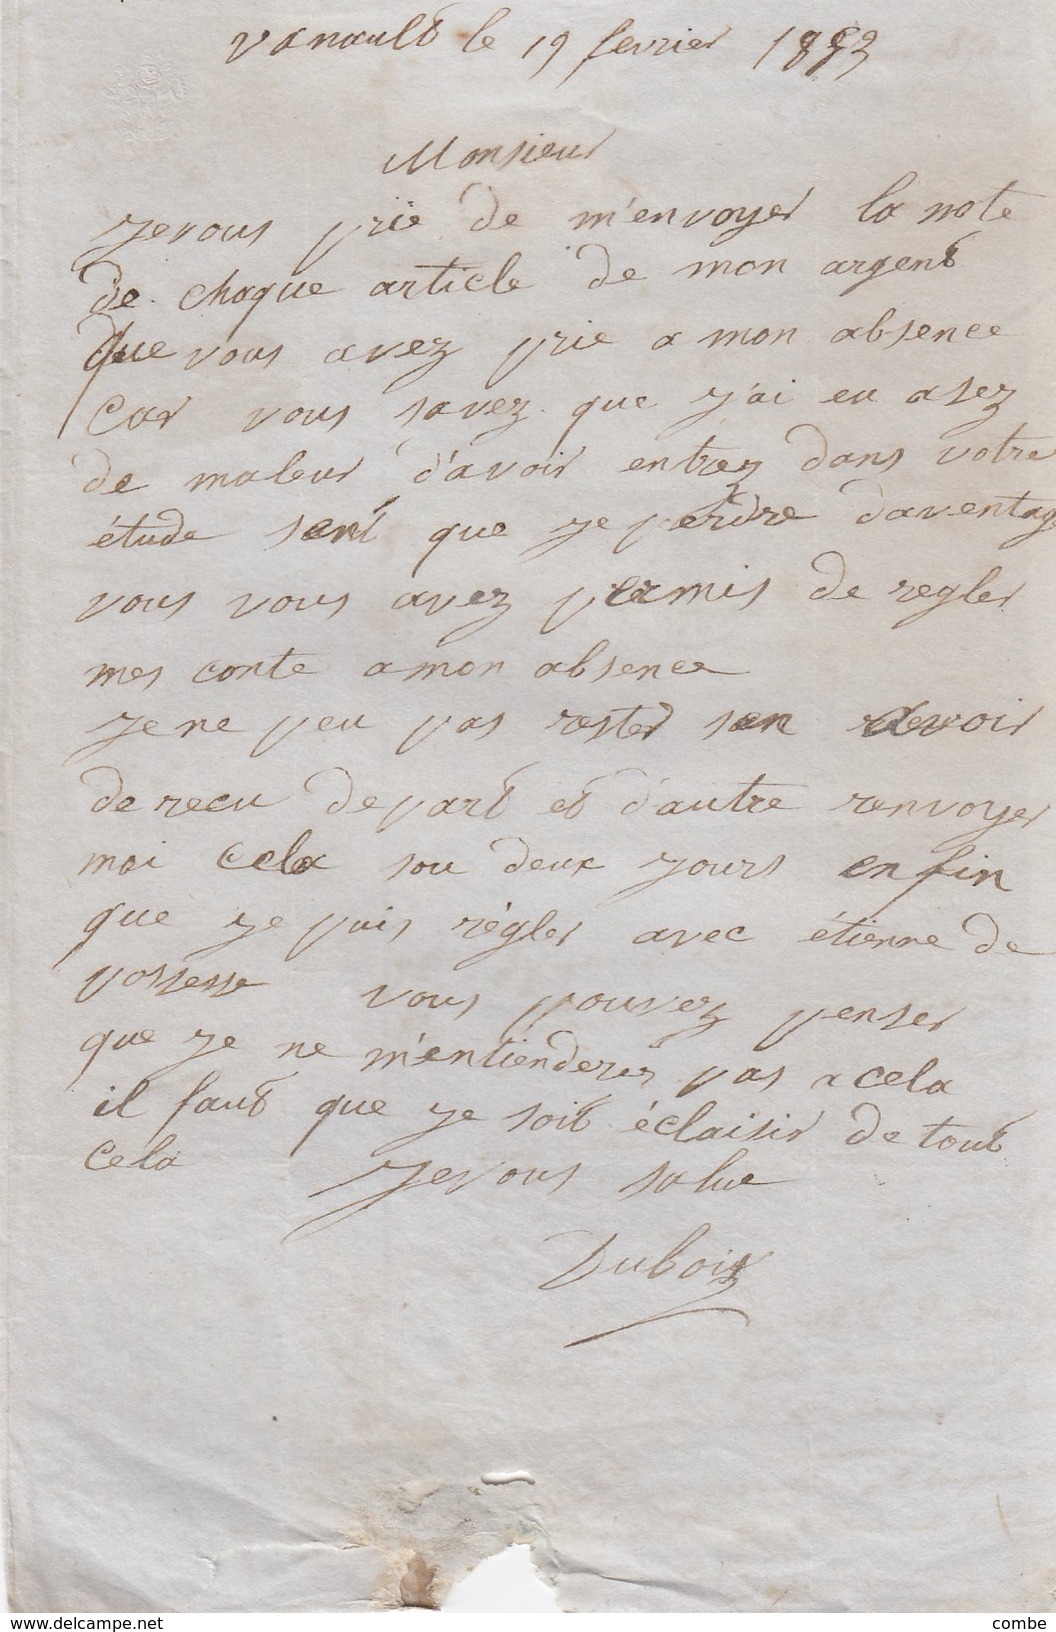 vanault le 19 fevrier 1853
Monsieur
Jevous prie de m'envoyer la note
de chaque article de mon argent
Que vous avez prie a mon absence
Car vous savez que j'ai eu asez
de maleur d'avoir entrez dans votre
étude sent que je perdre daventag
vous vous avez permis de regler
mes conte amon absence
Je ne peu pas rester sen devoir
de recu depart et d'autre renvoyer
moi cela sou deux jours enfin
que je puis règler avec étienne de
possesse vous pouvez penser
que je ne m'entienderez pas a cela
il faut que je soit éclaisir de tout
cela Jevous salue
Dubois
www.delcampe.net
combe